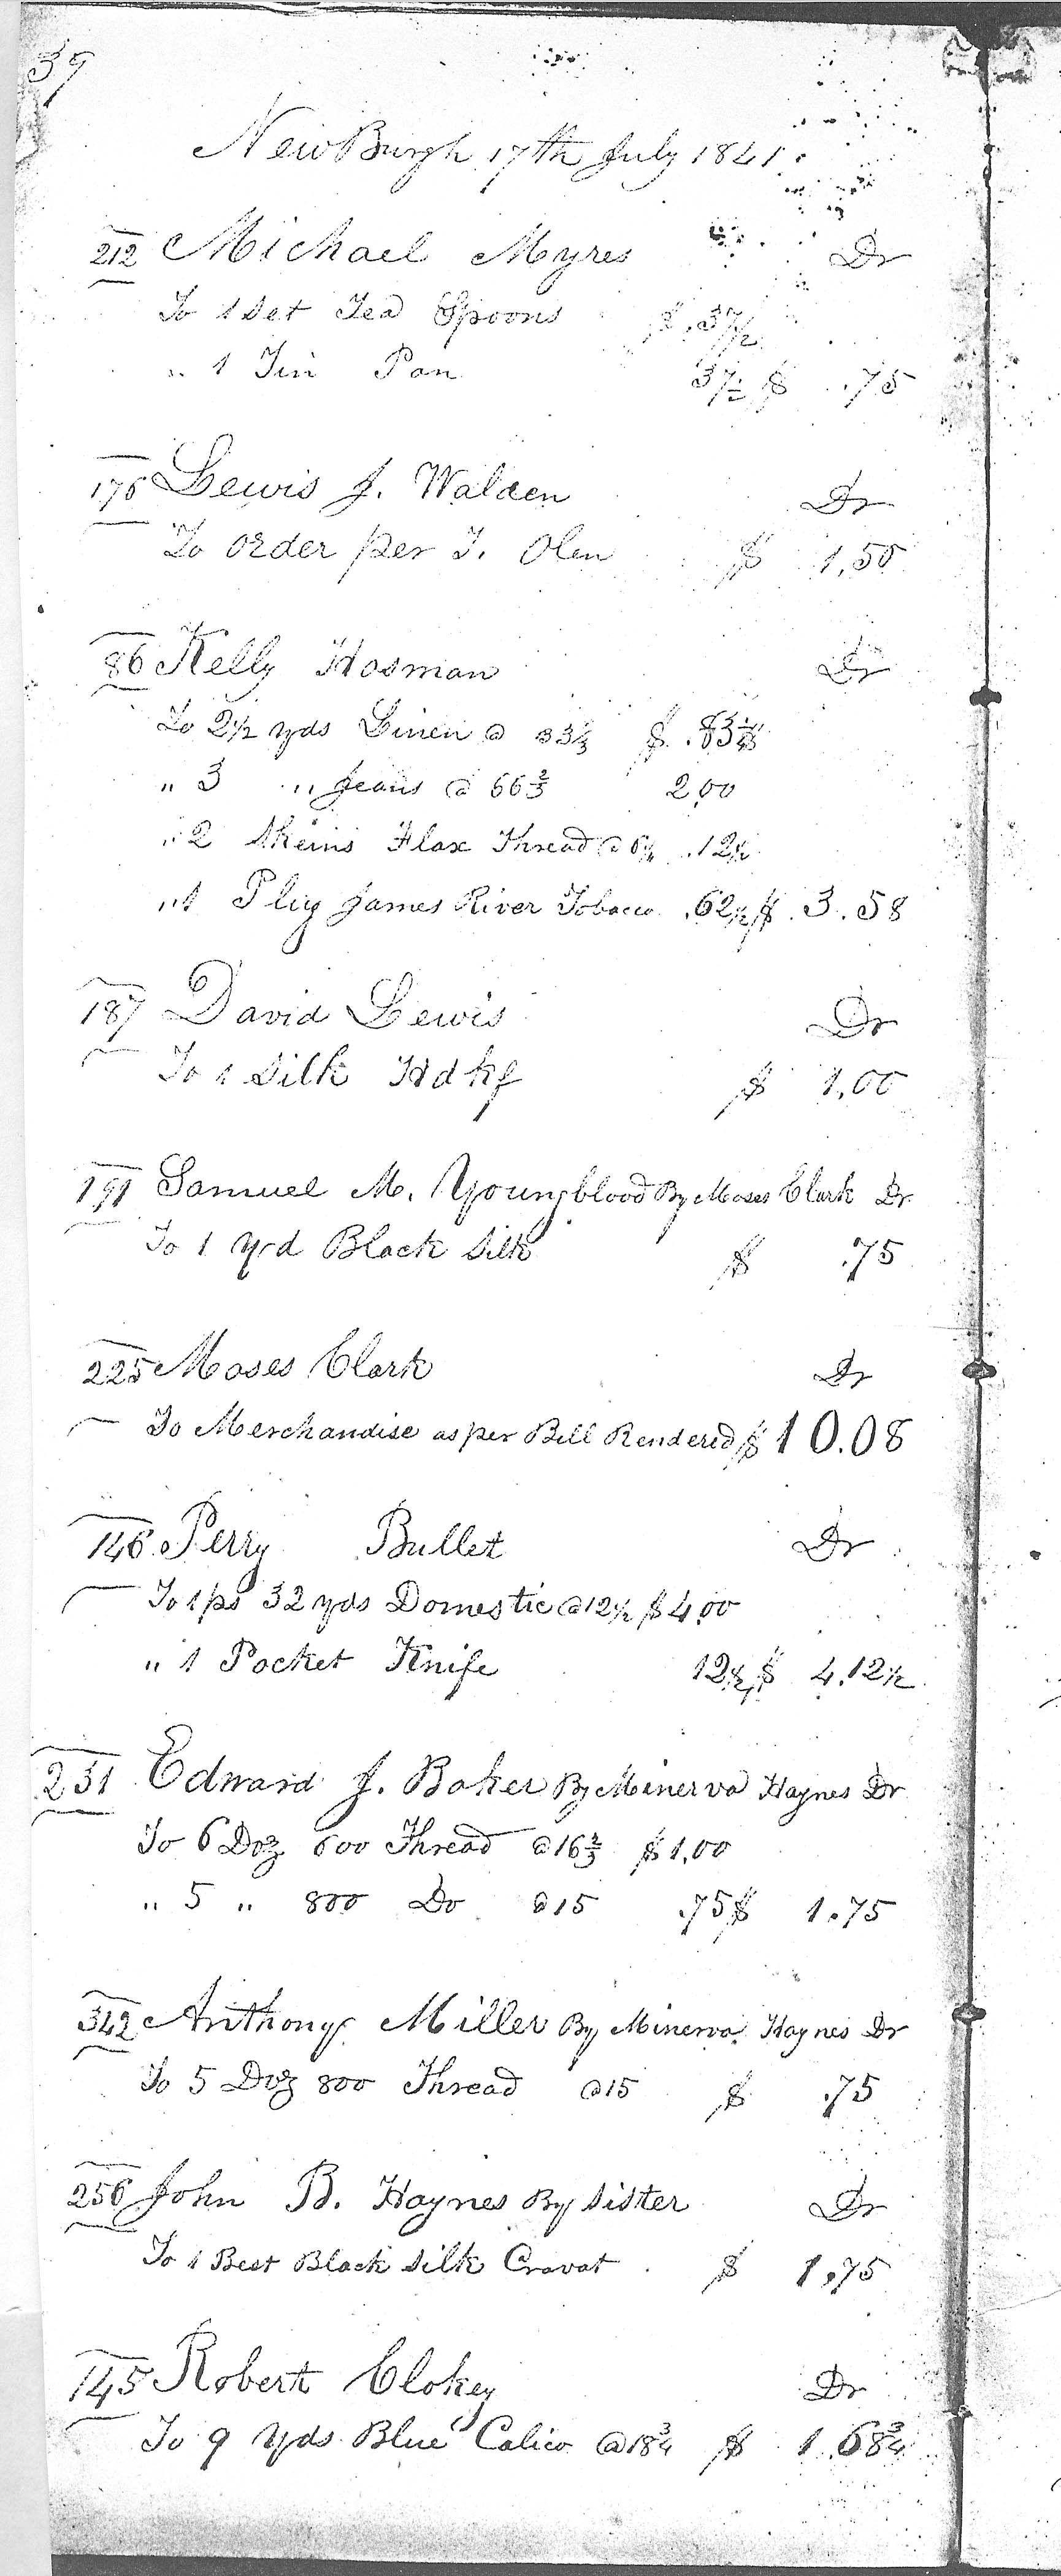 39
NewBurgh 17th July 1841.
212 Michael Myres Dr
To 1 Set Tea Spoons $ .37 1/2
" 1 Tin Pan 37 1/2 $ .75
176 Lewis J. Walden Dr
To order per T. Olen $ 1,50
86 Kelly Hosman Dr
To 2 1/2 yds Linen @ 33 1/3 $ .83 1/3
" 3 " Jeans @ 66 2/3 2,00
" 2 Skeins Flax Thread @ 6 1/4 .12 1/2
" 1 Plug James River Tobacco .62 1/2 $ 3.58
187 David Lewis Dr
To 1 Silk Hdkf $ 1,00
191 Samuel M. Youngblood By Moses Clark Dr
To 1 Yrd Black Silk $ .75
225 Moses Clark Dr
To Merchandise as per Bill Rendered $ 10.08
146 Perry Bullet Dr
To 1 ps 32 yds Domestic @ 12 1/2 $ 4,00
" 1 Pocket Knife 12 1/2 $ 4.12 1/2
231 Edward J. Baker By Minerva Haynes Dr
To 6 Doz 600 Thread @ 16 2/3 $ 1,00
" 5 " 800 Do @ 15 .75 $ 1.75
342 Anthony Miller By Minerva Haynes Dr
To 5 Doz 800 Thread @ 15 $ .75
256 John B. Haynes By Sister Dr
To 1 Best Black Silk Cravat $ 1,75
145 Robert Clokey Dr
To 9 Yds Blue Calico @ 18 3/4 $ 1.68 3/4